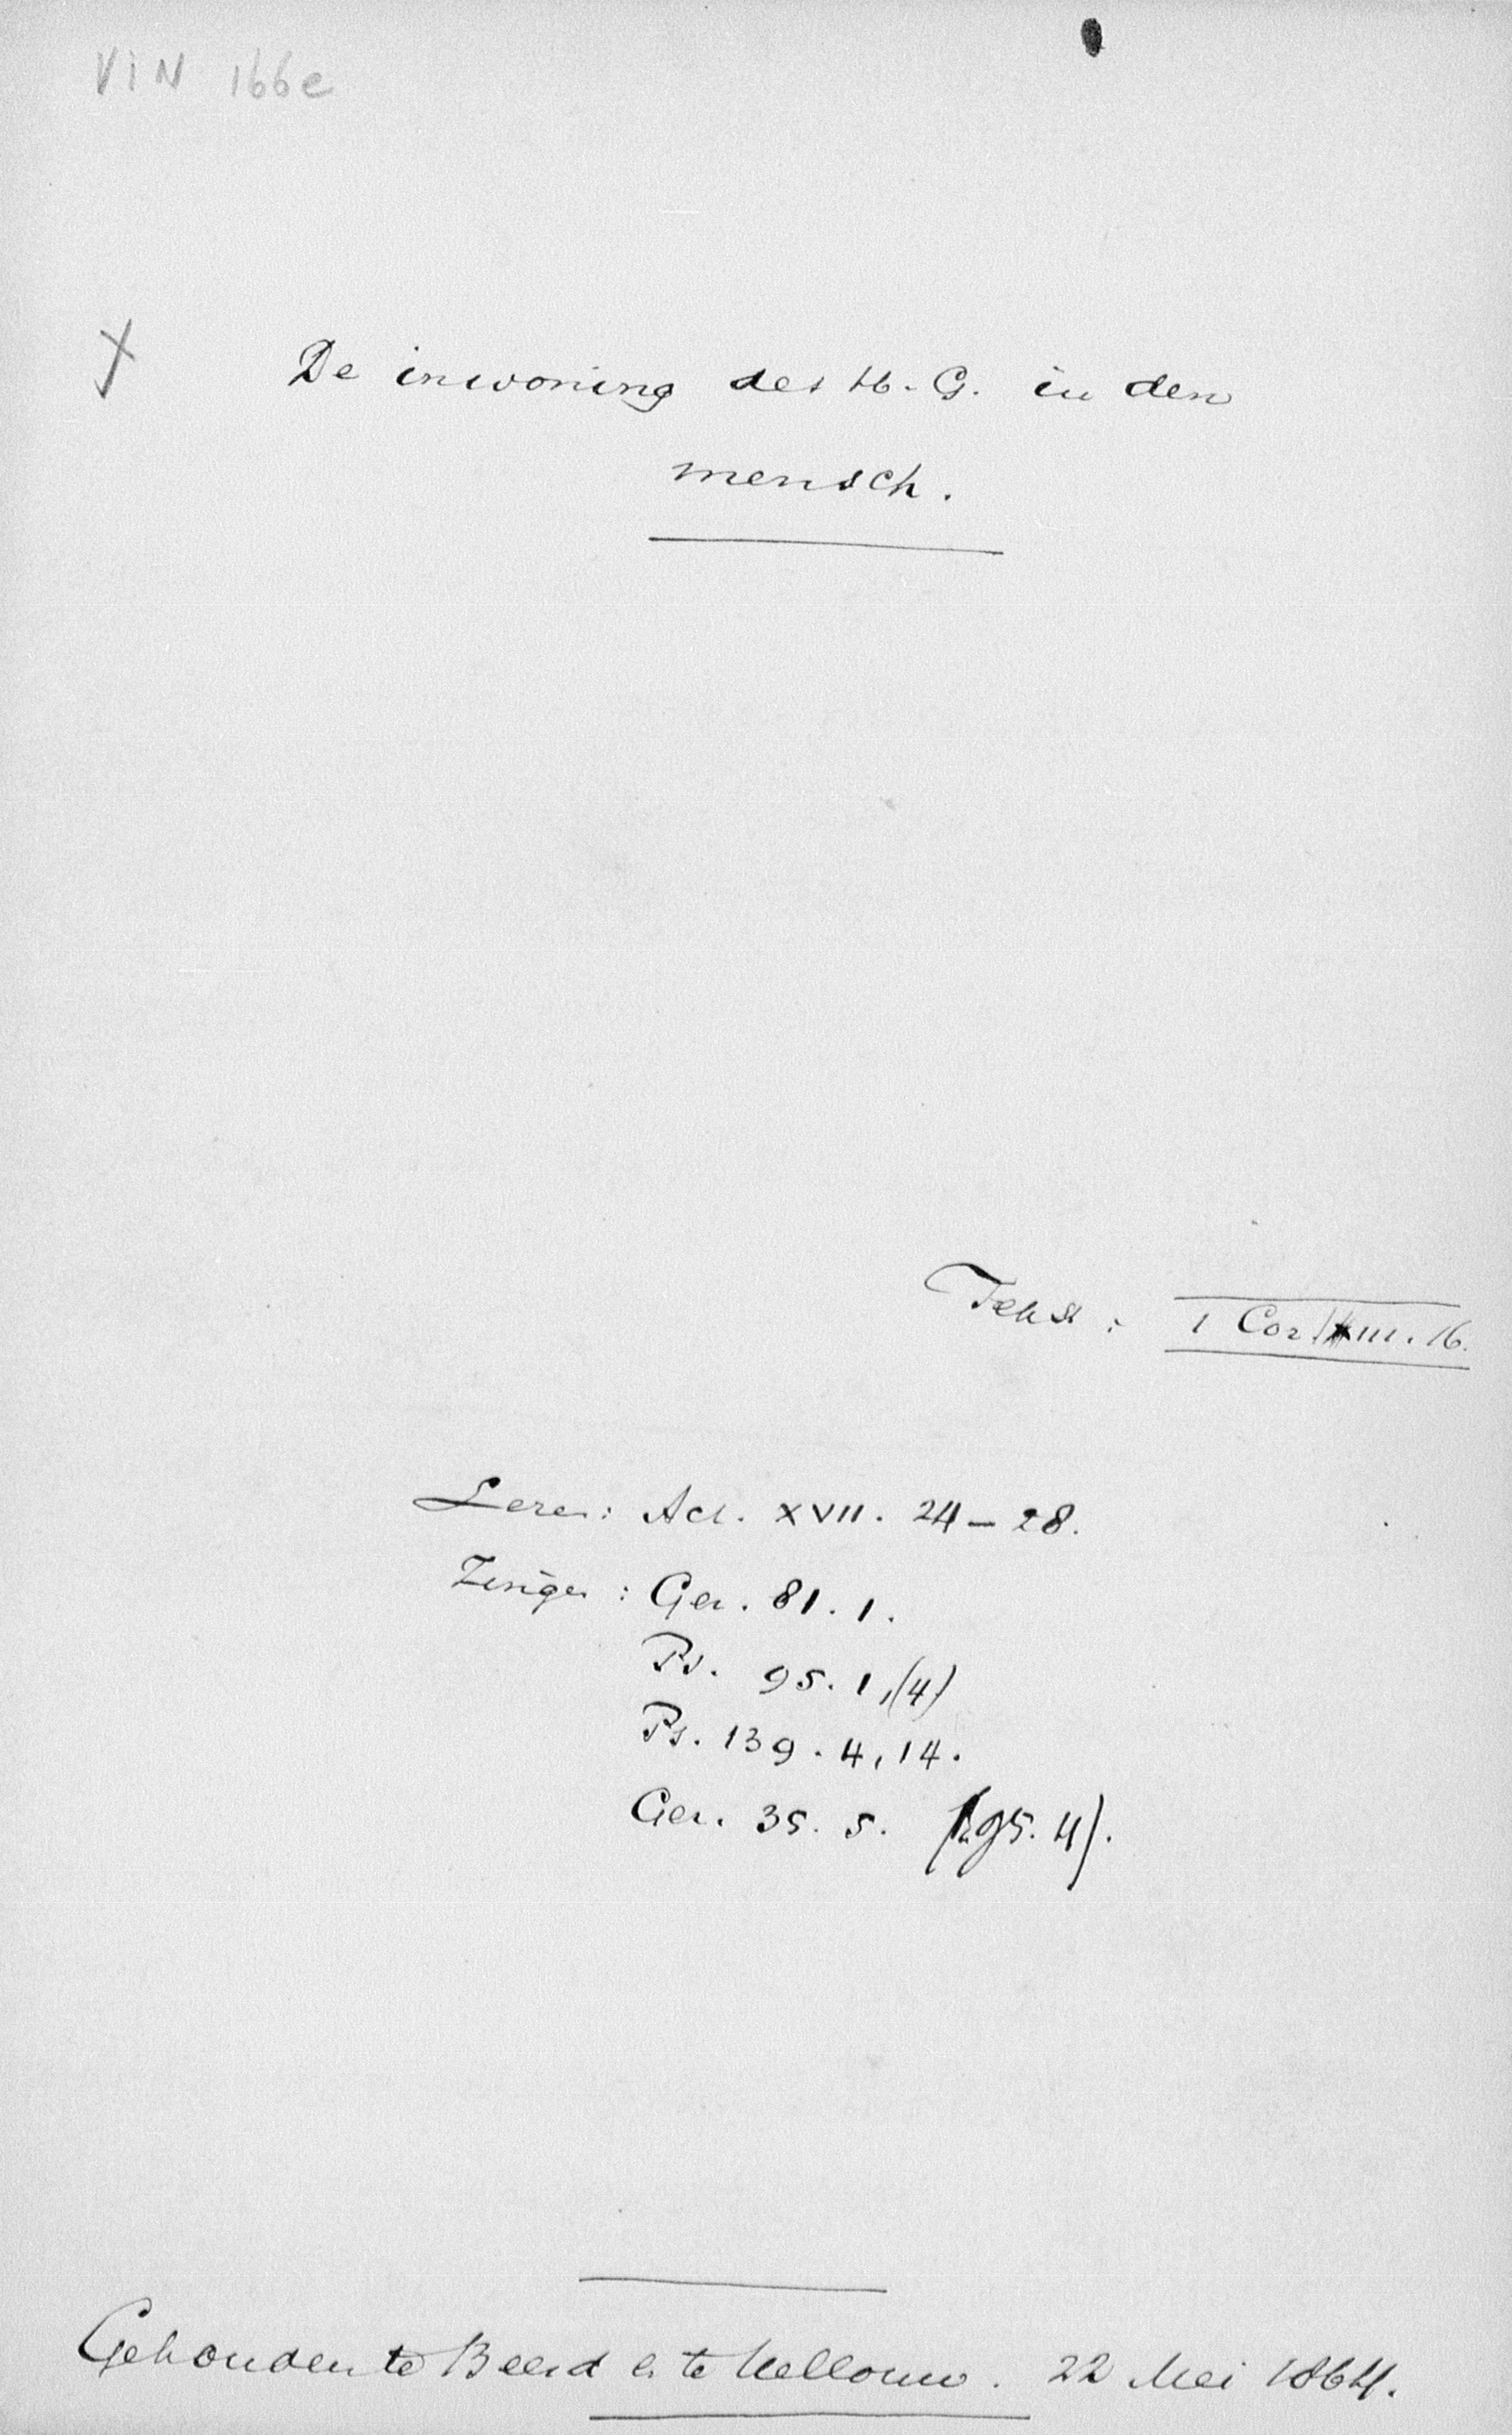 VIN 166e
De inwoning des H. G. in den
mensch.
Tekst: 1 Cor. III. 16.
Lezen: Act. XVII. 24 – 28.
Zingen: Gez. 81. 1.
Ps. 95. 1, (4)
Ps. 139. 4, 14.
Gez. 35. 5. (Ps 95. 4).
Gehouden te Beesd en te Hellouw. 22 Mei 1864.